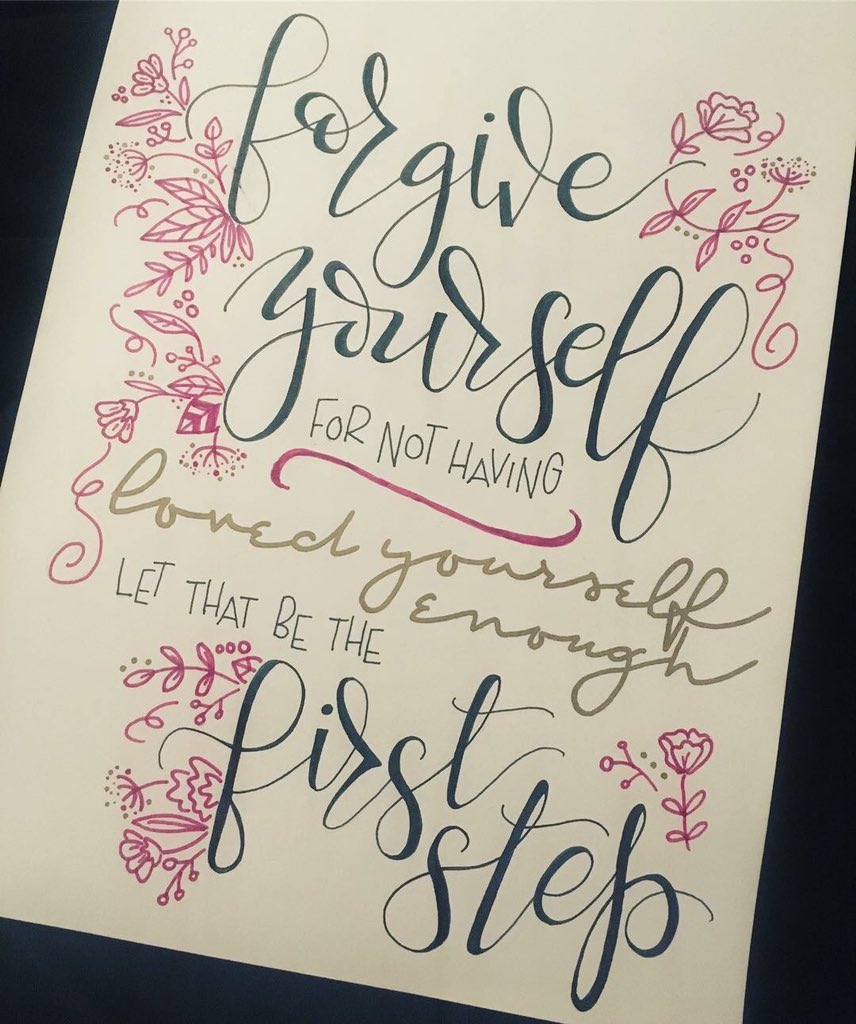 forgive
yourself
FOR NOT HAVING
loved yourself
enough
LET THAT BE THE
first
step